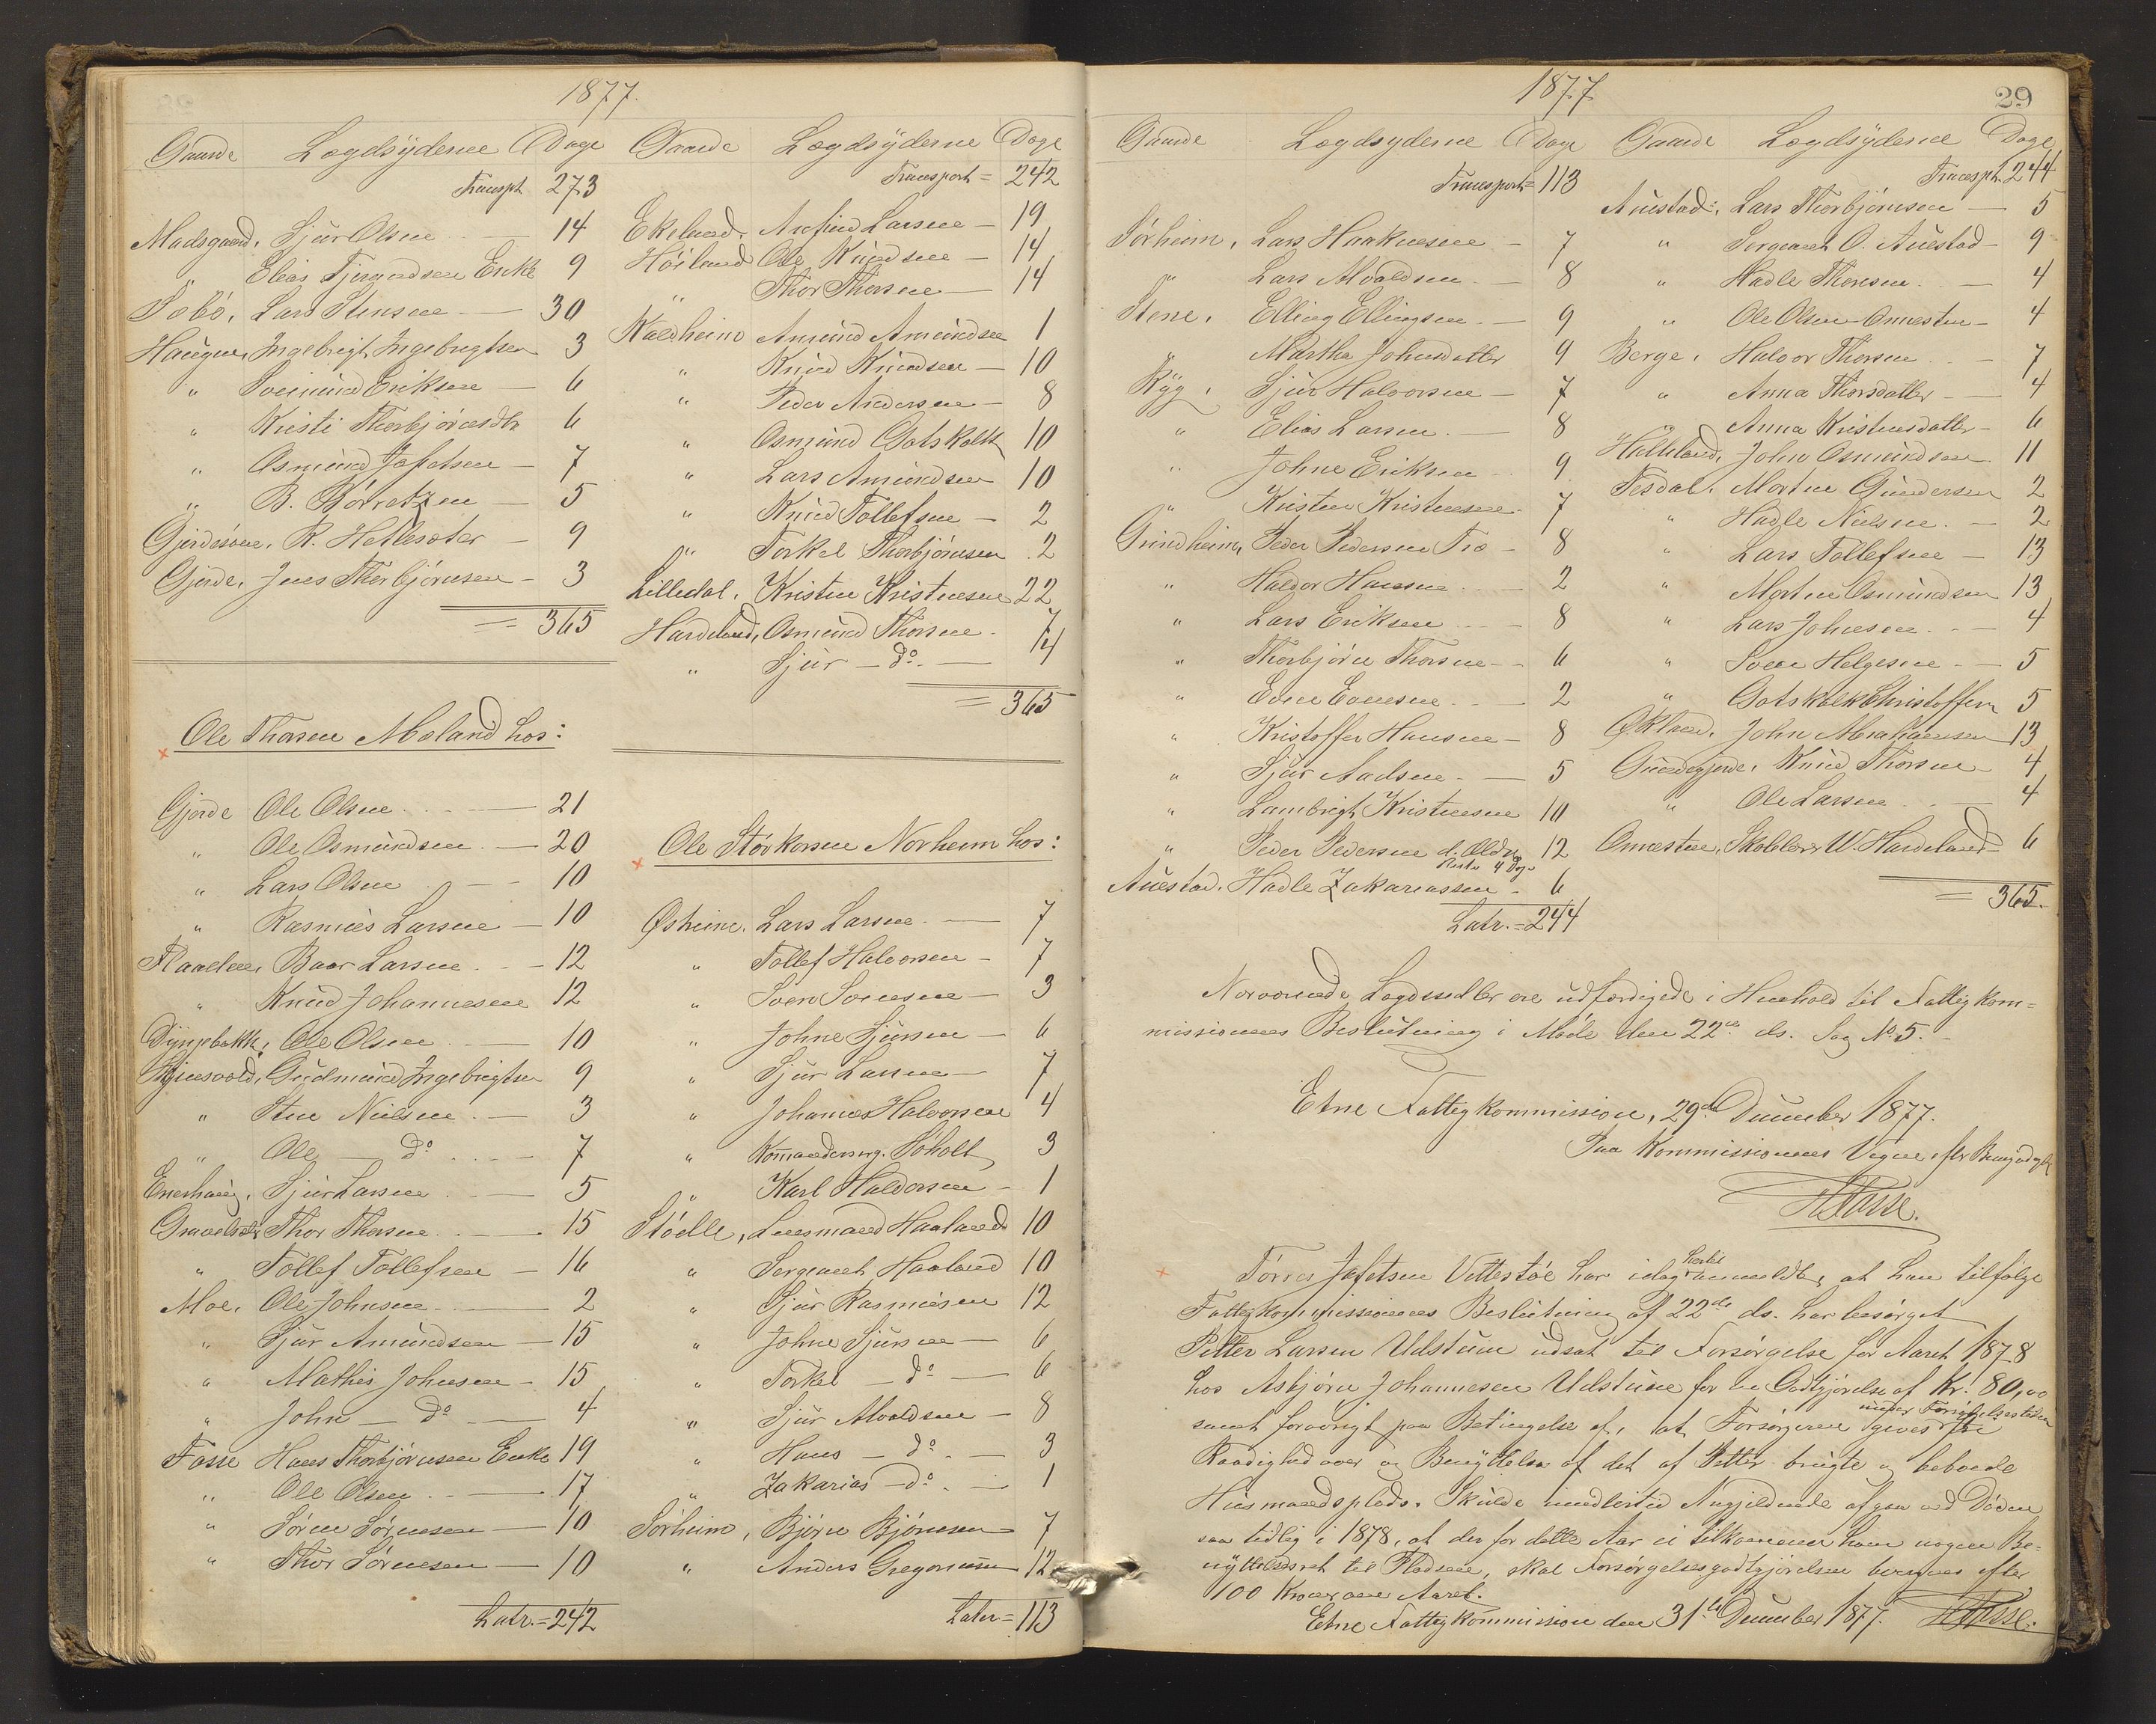 1877.
Gaarde Lægdsyderne Dage
Transpt. 273
Madsgaard, Sjur Olsen — 14
" Elias Fjermdsen Enke 9
Søbø, Lars Stensen — 30
Haugen, Ingebrigt Ingebrigtsen 3
" Sveinund Eriksen — 6
" Kristi Thorbjørnsdtr 6
" Osmund Jafetsen — 7
" B. Børretzen — 5
R. Hetlesæter — 9
Gjerde, Jens Thorbjørnsen — 3
= 365
Ole Thorsen Mæland hos:
Gjerde Ole Olsen — 21
" Ole Osmundsen — 20
" Lars Olsen — 10
" Rasmus Larsen — 10
Flaaden, Baar Larsen — 12
" Knud Johannesen 12
Dyngebakk, Ole Olsen — 10
Gudmund Ingebrigtsen 9
" Sten Nielsen — 3
" Ole — do — 7
Enerhaug, Sjur Larsen — 5
Thor Thorsen — 15
" Tollef Tollefsen — 16
Moe, Ole Johnsen — 2
" Sjur Amundsen — 15
" Mathis Johnsen — 15
" John — do — 4
Fosse Hans Thorbjørnsens Enke 19
" Ole Olsen — 17
" Sören Sörensen — 10
" Thor Sörensen — 10
Latr. = 242
Gaarde Lægdsyderne Dage
Transport = 242
Ekeland, Arnfind Larsen — 19
Høiland Ole Knudsen — 14
" Thor Thorsen — 14
Kaldheim Amund Amundsen 1
" Knud Knudsen — 10
" Peder Andersen — 8
" Osmund Gotskalk 10
" Lars Amundsen 10
" Knud Tollefsen — 2
" Torkel Thorbjørnsen 2
Lilledal, Kristen Kristensen 22
Hardeland, Osmund Thorsen — 7
" Sjur — do — 4
= 365
Ole Störkorsen Norheim hos:
Østreim, Lars Larsen — 7
" Tollef Halvorsen — 7
" Sven Svensen — 3
" Johne Sjursen — 6
" Sjur Larsen — 7
" Johannes Halvorsen 4
" Komandersrg. Söholt 3
" Karl Haldorsen — 1
Stödle, Lensmand Haaland 10
" Sergeant Haaland 10
" Sjur Rasmusen 12
" Johne Sjursen — 6
" Torkel — do — 6
" Sjur Alvaldsen — 8
" Hans — do — 3
" Zakarias — do — 1
Sörheim, Björn Björnsen 7
" Anders Gregoriussen 12
Later = 113
1877.
29
Gaarde Lægdsyderne Dage
Transport = 113
Sörheim, Lars Haaknesen — 7
" Lars Alvaldsen — 8
Stene, Elling Ellingsen — 9
" Martha Johnsdatter 9
Ryg, Sjur Halvorsen — 7
" Elias Larsen — 8
" Johne Eriksen 9
" Kristen Kristensen — 7
Grindheim, Peder Pedersen Træ — 8
" Haldor Hansen — 2
" Lars Eriksen — 8
" Thorbjörn Thorsen — 6
" Even Evensen — 2
" Kristoffer Hansen — 8
" Sjur Aadsen — 5
" Lambrigt Kristensen 10
" Peder Pedersen d. Ældre 12
Rest 4 Dg.
Auestad, Hadle Zakariassen — 6
Latr. = 244
Gaarde Lægdsyderne Dage
Transpt. 244
Auestad, Lars Thorbjörnsen — 5
" Sergeant O. Auestad — 9
" Hadle Thoresen — 4
" Ole Olsen Omvesten — 4
Berge, Halvor Thorsen — 7
" Anna Thorsdatter — 4
" Anna Kristensdatter — 6
Halleland, John Osmundsen 11
Tesdal, Morten Gundersen 2
" Hadle Nielsen — 2
" Lars Tollefsen — 13
" Morten Osmundsen 13
" Lars Johnsen — 4
" Sven Helgesen — 5
" Gotskalk Christoffersen 5
Økland, John Abrahamsen 13
Gundegjerde, Knud Thorsen — 4
" Ole Larsen — 4
Omvesten, Skolelærer W. Hardeland 6
= 365.
Nærværende Lægdssedler ere udfærdigede i Henhold til Fattigkom=
missionens Beslutning i Møde den 22de ds. Sag No 5. —
Etne Fattigkommission, 29de December 1877.
Paa Kommissionens Vegne, efter Bemyndigelse
H. Fosse.
Törres Jafetsen Vettestöe har idag hertil anmeldt, at han tilfølge
Fattigkommissionens Beslutning af 22de ds. har besørget
Petter Larsen Udstuen udsat til Forsørgelse for Aaret 1878
hos Asbjørn Johannesen Udstuen for en Godtgjørelse af Kr. 80,00
samt forøvrigt paa Betingelse af, at Forsørgeren gives under Forsørgelsestiden fri
Raadighed over og Benyttelse af det af Petter brugte og beboede
Husmandsplads. Skulde imidlertid Angjeldende afgaa ved Døden
saa tidlig i 1878, at der for dette Aar ei tilkommer ham nogen Be=
nyttelsesret til Pladsen, skal Forsørgelsesgodtgjørelsen beregnes efter
100 Kroner om Aaret.
Etne Fattigkommission den 31te December 1877. H. Fosse.